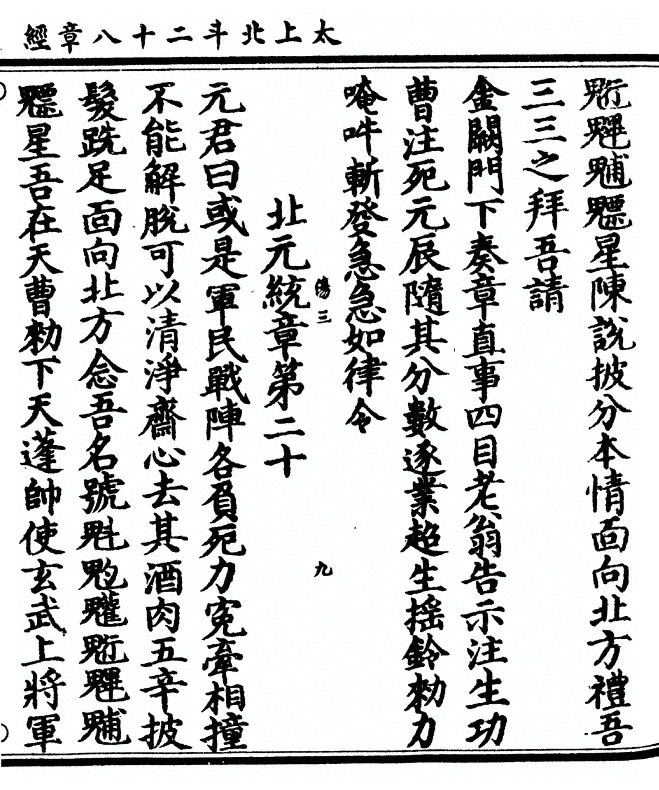 太上北斗二十八章經
䰢魓𩳐魒星陳說披分本情面向北方禮吾
三三之拜吾請
金闕門下奏章直事四目老翁告示注生功
曹注死元辰隨其分數逐業超生搖鈴勑力
唵吽斬發急急如律令
傷三
九
北元統章第二十
元君曰或是軍民戰陣各負死力冤牽相撞
不能解脫可以清淨齋心去其酒肉五辛披
髮跣足面向北方念吾名號魁𩲃𩵄䰢魓𩳐
魒星吾在天曹勑下天蓬帥使玄武上將軍